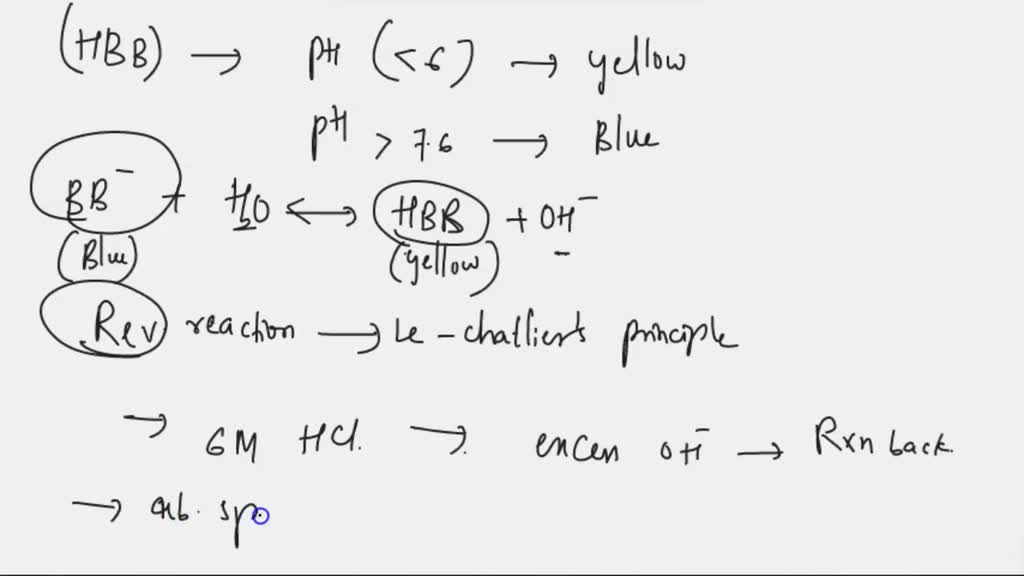 (HBB) → pH (<6) → yellow
pH > 7.6 → Blue
BB⁻ + H₂O ↔ HBB + OH⁻
(Blue) (yellow)
Rev reaction → Le-chatlierts principle
→ 6M HCl. → encen OH⁻ → Rxn back.
→ sp